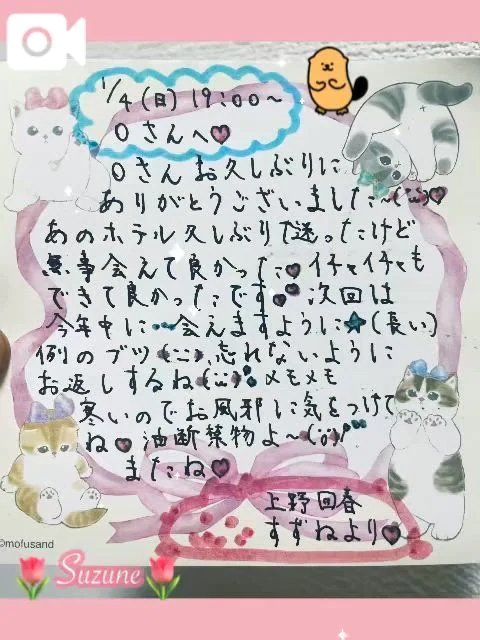 1/4(日)19:00~
Oさんへ♥
Oさんお久しぶりに
ありがとうございました~(ü)♥
あのホテル久しぶりで迷ったけど
無事会えて良かった♥イチャイチャも
できて良かったです。♥次回は
今年中に…会えますように★(長い)
例のブツ(ー)忘れないように
お返しするね(ü)メモメモ
寒いのでお風邪に気をつけて
ね♥油断禁物よ~(ö)!!
またね♥
上野回春
すずねより♥
©mofusand
Suzune